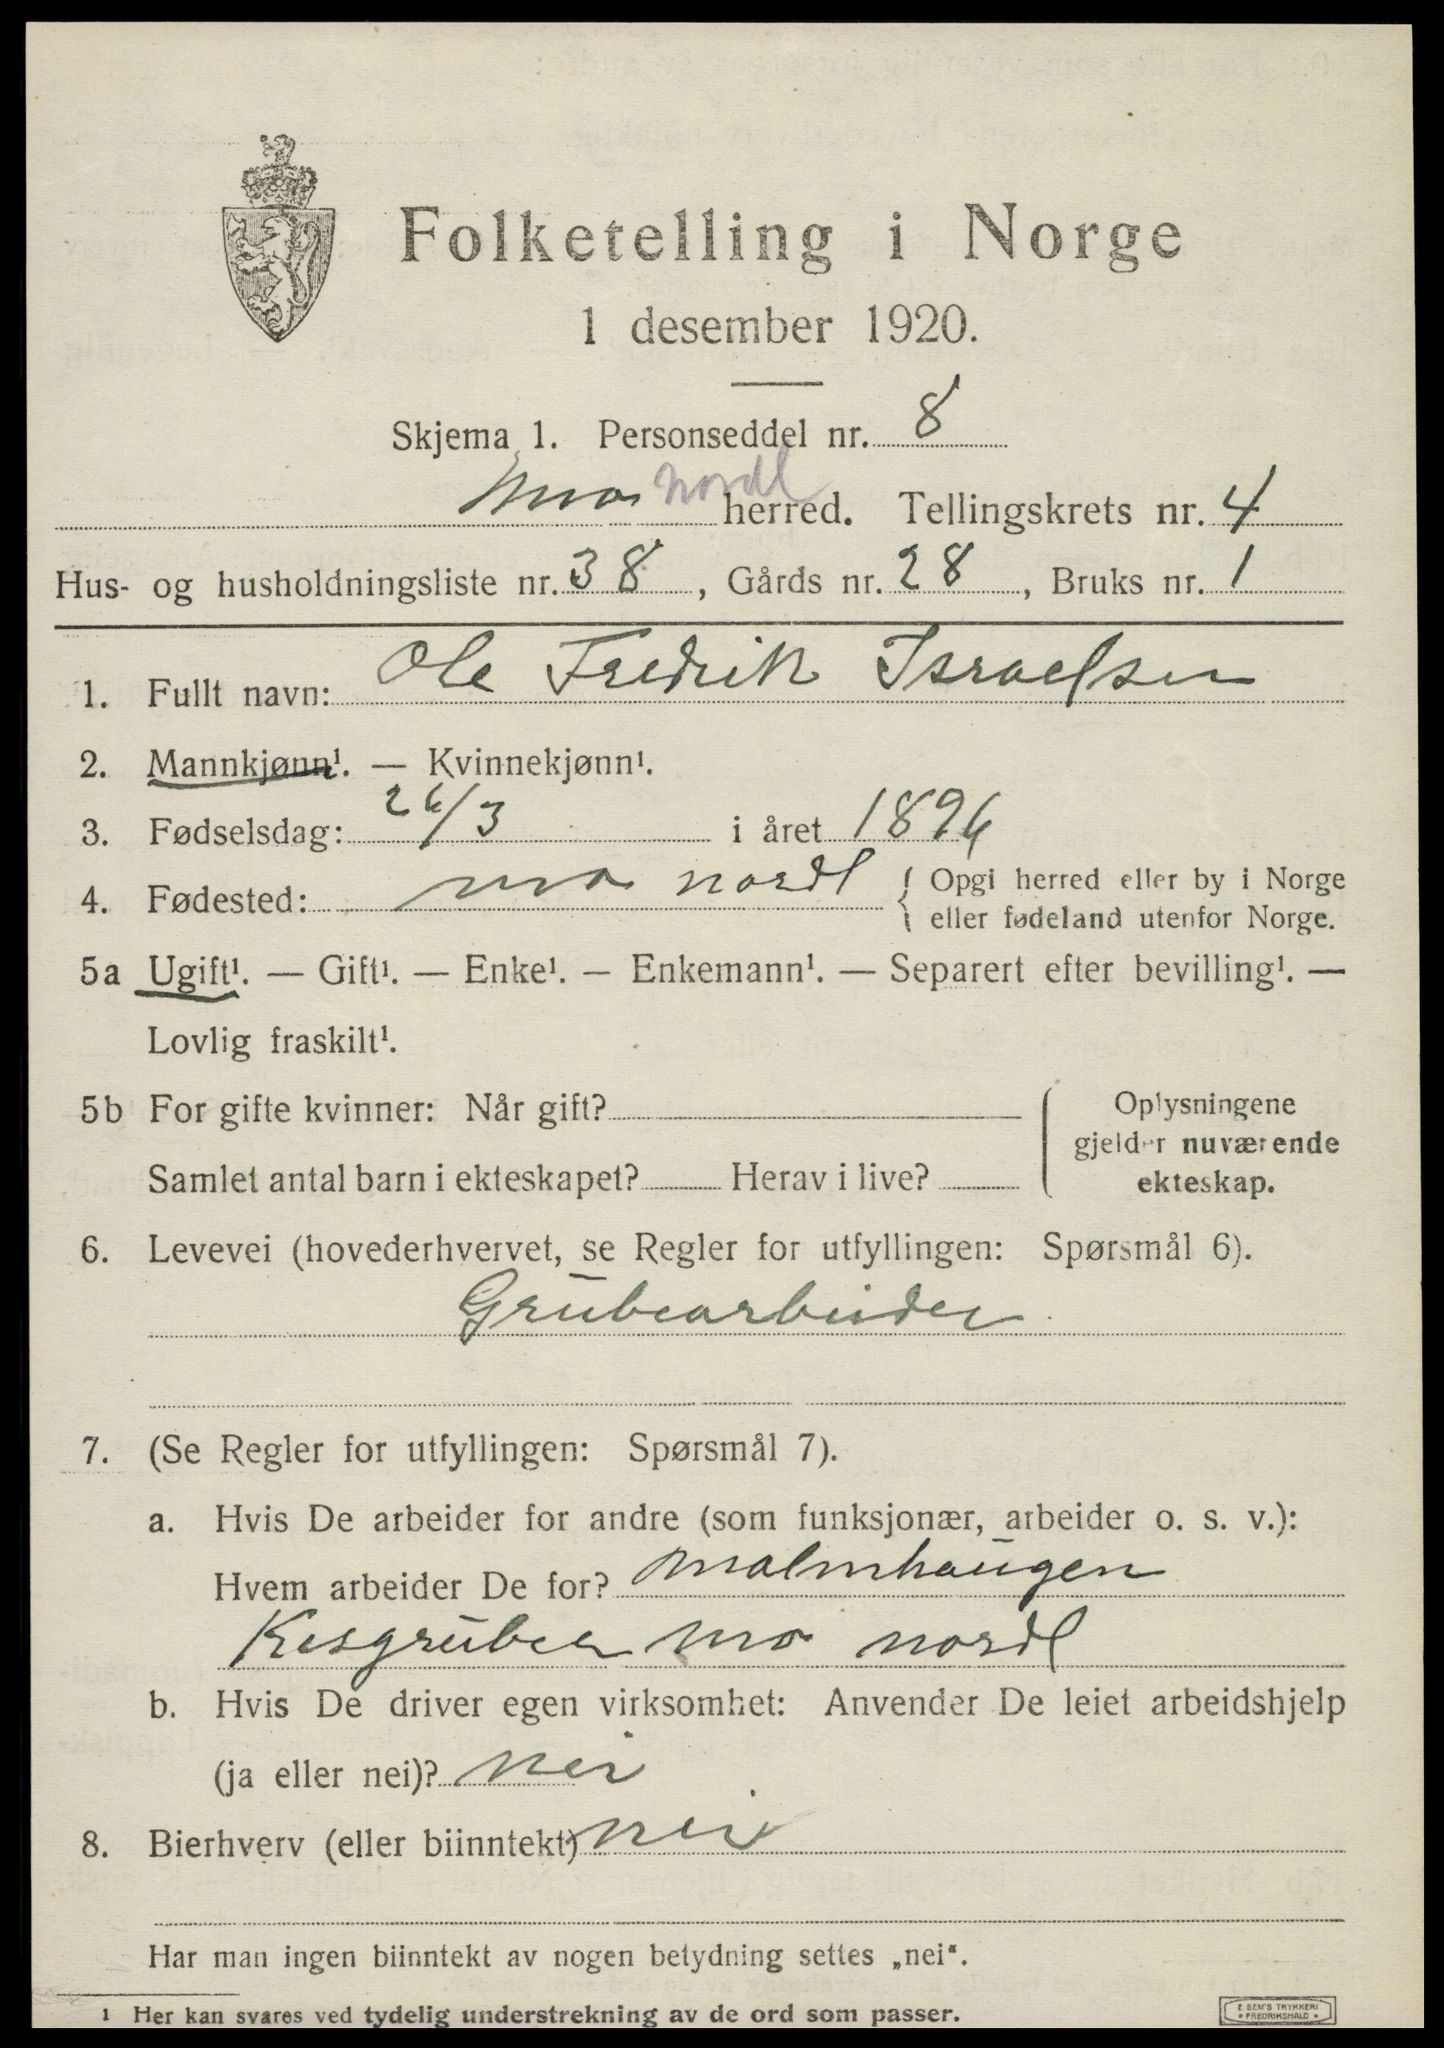 Folketelling i Norge
1 desember 1920.
Skjema 1. Personseddel nr. 8
Mo Nordl herred. Tellingskrets nr. 4
Hus- og husholdningsliste nr. 38, Gårds nr. 28, Bruks nr. 1
1. Fullt navn: Ole Fredrik Israelsen
2. Mannkjønn¹. — Kvinnekjønn¹.
3. Fødselsdag: 26/3 i året 1896
4. Fødested: Mo Nordl { Opgi herred eller by i Norge
eller fødeland utenfor Norge.
5a Ugift¹. — Gift¹. — Enke¹. — Enkemann¹. — Separert efter bevilling¹. —
Lovlig fraskilt¹.
5b For gifte kvinner: Når gift?
Samlet antal barn i ekteskapet? Herav i live?
Oplysningene
gjelder nuværende
ekteskap.
6. Levevei (hovederhvervet, se Regler for utfyllingen: Spørsmål 6).
Grubearbeider
7. (Se Regler for utfyllingen: Spørsmål 7).
a. Hvis De arbeider for andre (som funksjonær, arbeider o. s. v.):
Hvem arbeider De for? Malmhaugen
Kisgruber Mo Nordl
b. Hvis De driver egen virksomhet: Anvender De leiet arbeidshjelp
(ja eller nei)? nei
8. Bierhverv (eller biinntekt) nei
Har man ingen biinntekt av nogen betydning settes „nei“.
¹ Her kan svares ved tydelig understrekning av de ord som passer.
E SEM'S TRYKKERI
• FREDRIKSHALD •